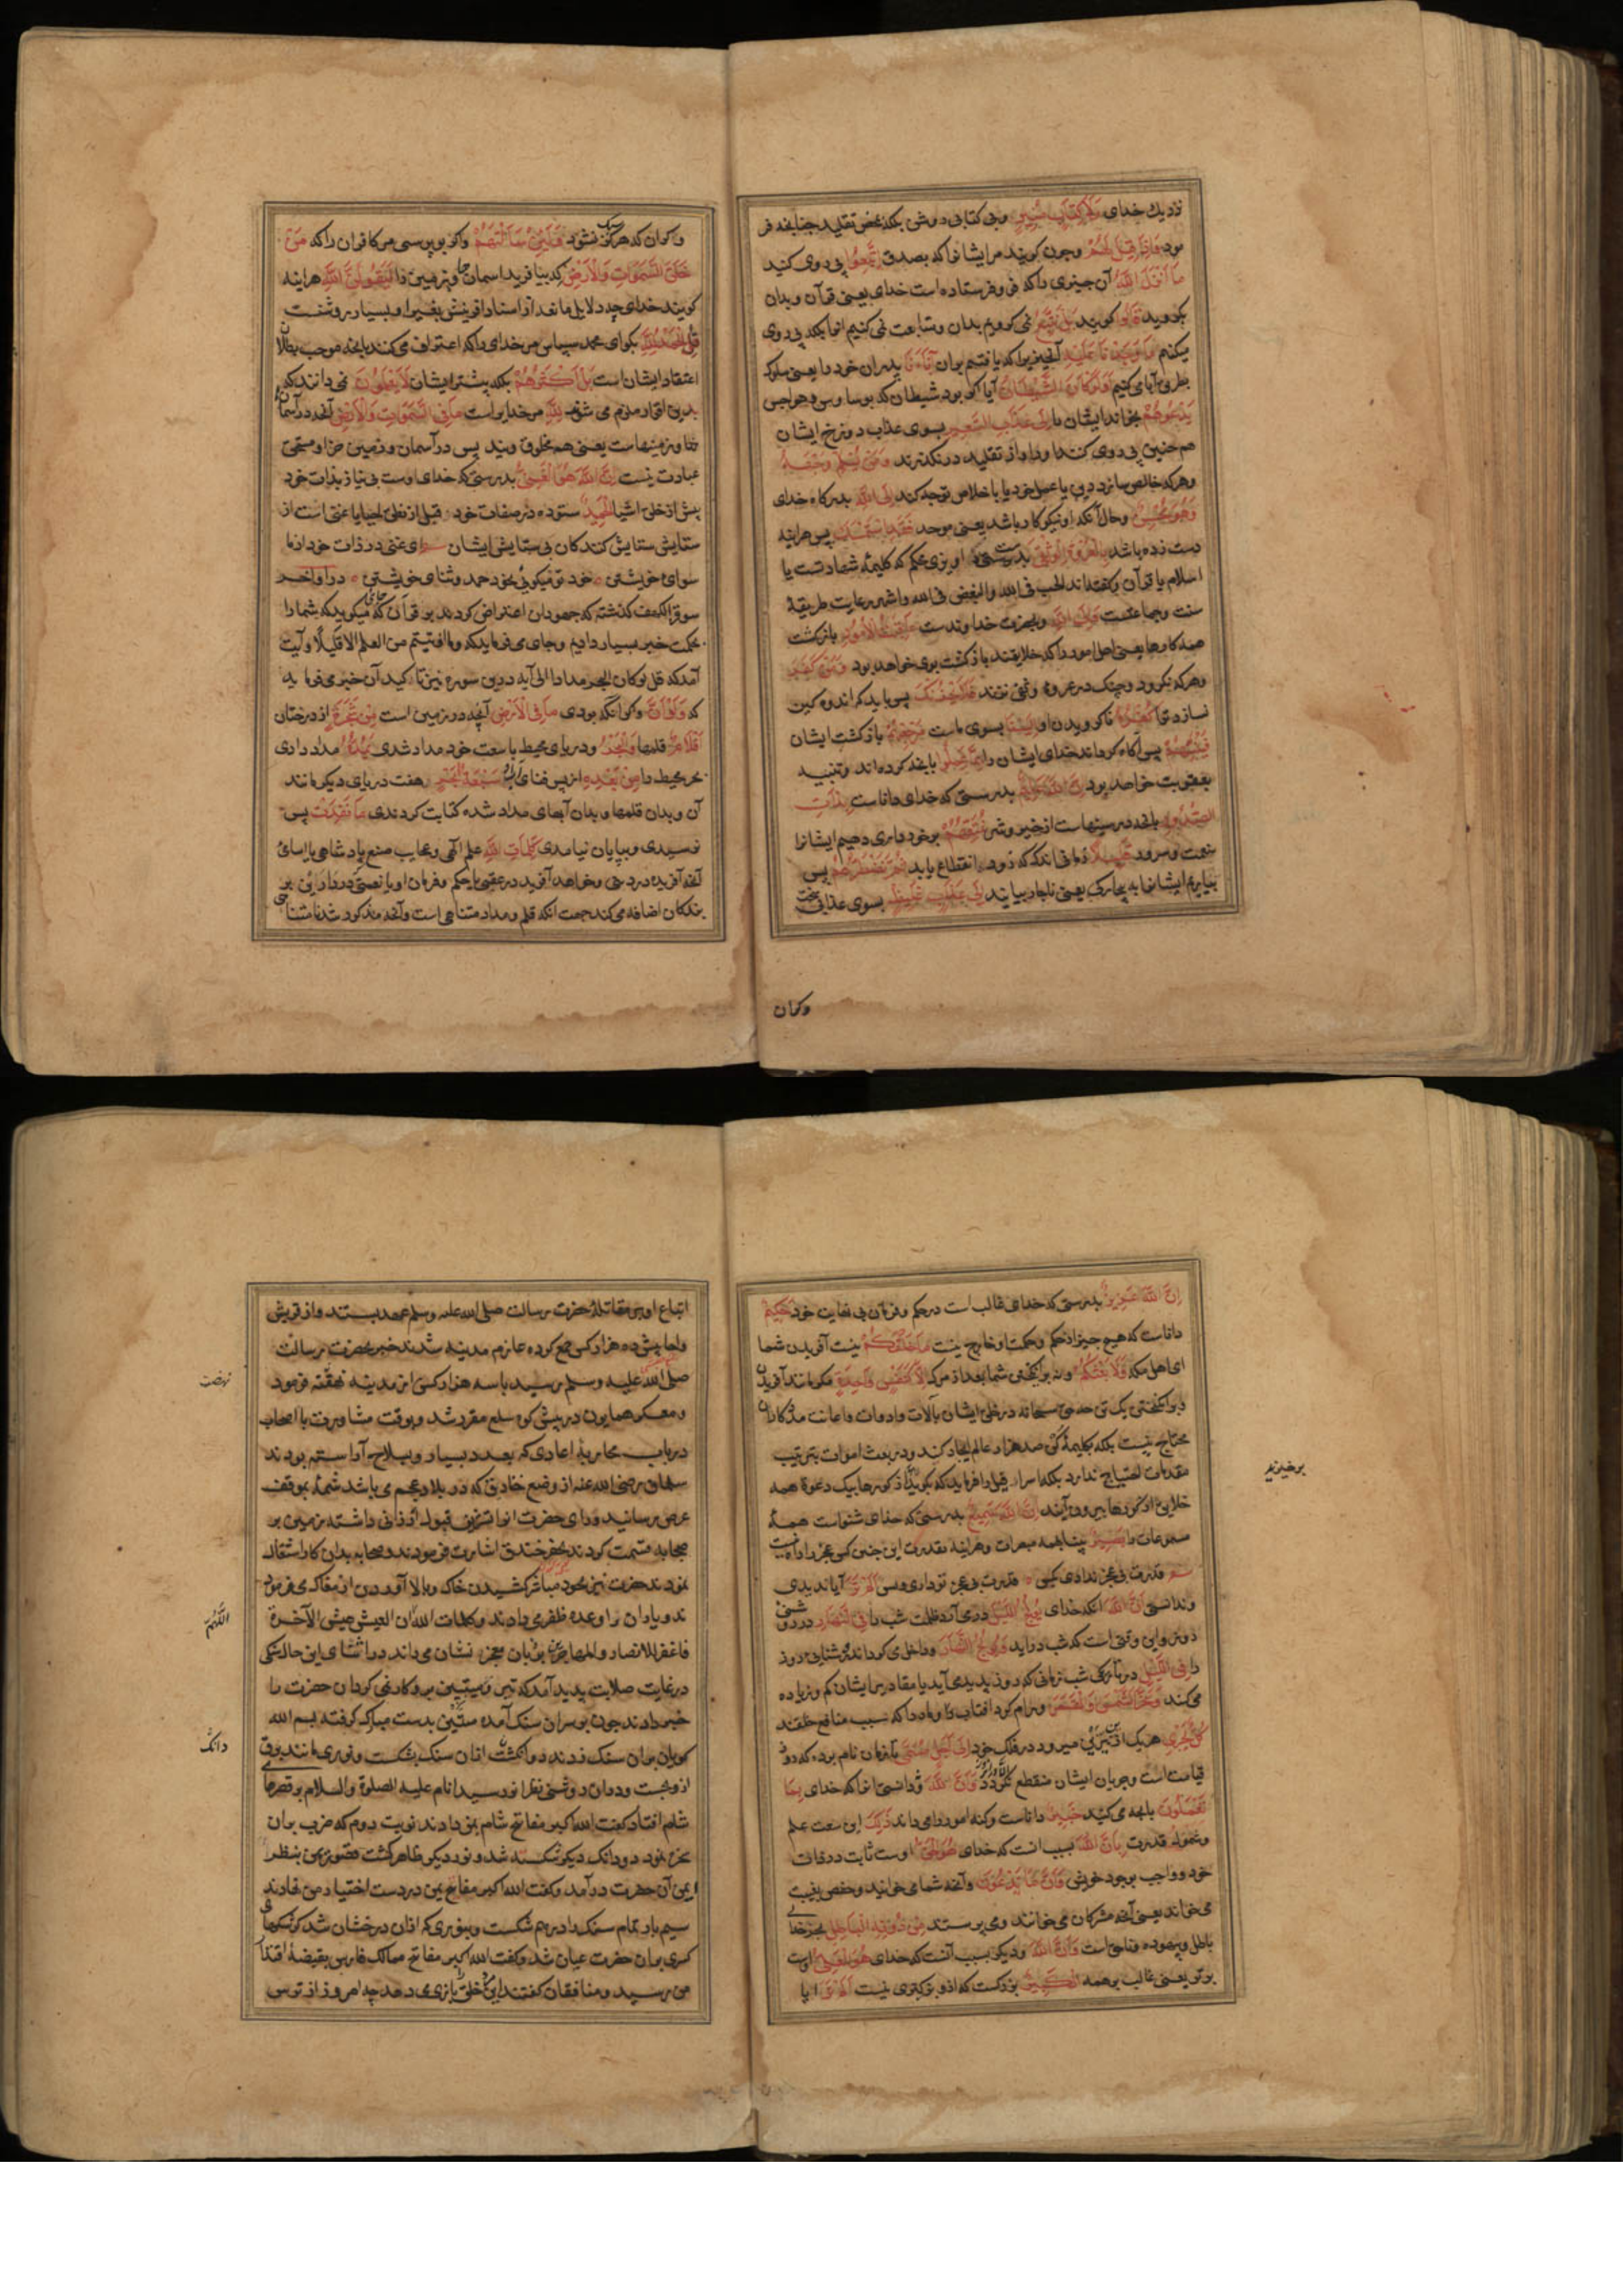 نزدیك خدای وَلَا كِتَابٍ مُنِيرٍ وبی كتابی روشن بلكه محض تقلید چنانچه فر
مود وَاِذَا قِيلَ لَهُمْ وچون كویند مر ایشانرا كه بصدق اتَّبِعُوا پی روی كنید
مَا اَنْزَلَ اللّٰهُ آن چیزی را كه فرو فرستاده است خدای یعنی قرآن وبدان
بكروید قَالُوا كویند بَلْ نَتَّبِعُ نمی كرویم بدان ومتابعت نمی كنیم انرا بلكه پی روی
میكنم مَا وَجَدْنَا عَلَيْهِ آنچیزیرا كه یافتیم بران آبَاءَنَا پدران خود را یعنی سلوك
بطریق آبا می كنیم اَوَلَوْ كَانَ الشَّيْطَانُ آیا اكر بود شیطان كه بوساوس وهواجس
يَدْعُوهُمْ بخواند ایشان را اِلٰى عَذَابِ السَّعِيرِ بسوی عذاب دوزخ ایشان
هم چنین پی روی كنند اورا واز تقلید در نكذرند وَمَنْ يُسْلِمْ وَجْهَهُ
وهر كه خالص سازد دین یا عمل خود یا باخلاص توجه كند اِلَى اللّٰهِ بدركاه خدای
وَهُوَ مُحْسِنٌ وحال آنكه او نیكوكار باشد یعنی موحد فَقَدِ اسْتَمْسَكَ پس هراینه
دست زده باشد بِالْعُرْوَةِ الْوُثْقٰى بدست اویزی محكم كه كلیمهٔ شهادتست یا
اسلام یا قرآن وكفته اند الحب فی الله والبغض فی الله واشهر رعایت طریقهٔ
سنت وجماعتست وَاِلَى اللّٰهِ وبحضرت خداوندست عَاقِبَةُ الْاُمُورِ بازكشت
همه كارها یعنی اهل امور را كه خلایقند بازكشت بوی خواهد بود وَمَنْ كَفَرَ
وهر كه نكرود وچنك در عروهٔ وثقی نزند فَلَا يَحْزُنْكَ پس باید كه اندوهكین
نسازد ترا كُفْرُهُ ناكرویدن او اِلَيْنَا بسوی ماست مَرْجِعُهُمْ بازكشت ایشان
فَنُنَبِّئُهُمْ پس آكاه كردانیم ایشان را بِمَا عَمِلُوا بانچه كرده اند وتنبیه
بعقوبت خواهد بود اِنَّ اللّٰهَ عَلِيمٌ بدرستی كه خدای داناست بِذَاتِ
الصُّدُورِ بانچه در سینهاست از خیر وشر نُمَتِّعُهُمْ برخورداری دهیم ایشانرا
بنعمت وسرور قَلِيلًا زمانی اندك كه زود انقطاع یابد ثُمَّ نَضْطَرُّهُمْ پس
بیاریم ایشانرا به بیچاركی یعنی ناچار بیایند اِلٰى عَذَابٍ غَلِيظٍ بسوی عذابی سخت
وكران
وكران كه هركز سبك نشود وَلَئِنْ سَاَلْتَهُمْ واكر بپرسی مر كافران را كه مَنْ
خَلَقَ السَّمٰوَاتِ وَالْاَرْضَ كه بیافرید اسمانها وزمین را لَيَقُولُنَّ اللّٰهُ هراینه
كویند خدای چه دلایل مانعه از اسناد افرینش بغیر او بسیار روشنست
قُلِ الْحَمْدُ لِلّٰهِ بكو ای محمد سپاس مر خدای را كه اعتراف می كنند بانچه موجب بطلان
اعتقاد ایشان است بَلْ اَكْثَرُهُمْ بلكه بیشتر ایشان لَا يَعْلَمُونَ نمی دانند كه
بدین اقرار ملزم می شوند لِلّٰهِ مر خدایراست مَا فِي السَّمٰوَاتِ وَالْاَرْضِ آنچه در آسمان
ها وزمینهاست یعنی همه مخلوق ویند پس در آسمان وزمین جز او مستحق
عبادت نیست اِنَّ اللّٰهَ هُوَ الْغَنِيُّ بدرستی كه خدای اوست بی نیاز بذات خود
پیش از خلق اشیا الْحَمِيدُ ستوده در صفات خود
ستایش ستایش كنندكان بی ستایش ایشان ای غنی در ذات خود از ما
سوای خویشتن خود تو میكویی بخود حمد وثنای خویشتن در اواخر
سورة الكهف كذشته كه جهودان اعتراض كردند بر قرآن كه جایی میكوید كه شما را
حكمت خیر بسیار دادیم وجای می فرماید كه وما اوتیتم من العلم الا قلیلا وآیت
آمد كه قل لو كان البحر مدادا الی آیه درین سوره نیز تاكید آن خبر می فرماید
كه وَلَوْ اَنَّ واكر انكه بودی مَا فِي الْاَرْضِ آنچه در زمین است مِنْ شَجَرَةٍ از درختان
اَقْلَامٌ قلمها وَالْبَحْرُ ودریای محیط با سعت خود مداد شدی يَمُدُّهُ مداد دادی
بحر محیط را مِنْ بَعْدِهِ از پس فنای او سَبْعَةُ اَبْحُرٍ هفت دریای دیكر مانند
آن وبدان قلمها وبدان آبهای مداد شده كتابت كردندی مَا نَفِدَتْ پس
نرسیدی وبپایان نیامدی كَلِمَاتُ اللّٰهِ علم الهی وعجایب صنع پادشاهی یا اسامی
آنچه آفریده در دنیی وخواهد آفرید در عقبی یا حكم وفرمان او یا نعمتی كه در دارین بر
بندكان اضافه می كند جهت انكه قلم ومداد متناهی است وآنچه مذكور شد نا متناهی
اِنَّ اللّٰهَ عَزِيزٌ بدرستی كه خدای غالب است در حكم وفرمان بی نهایت خود حَكِيمٌ
داناست كه هیچ چیز از حكم وحكمت او خارج نیست مَا خَلْقُكُمْ نیست آفریدن شما
ای اهل مكه وَلَا بَعْثُكُمْ ونه برانكیختن شما بعد از مرك اِلَّا كَنَفْسٍ وَاحِدَةٍ مكر مانند آفریدن
وبرانكیختن یك تن چه حق سبحانه در خلق ایشان بآلات وادوات واعانت مدد كاران
محتاج نیست بلكه بكلیمهٔ كن صد هزار عالم ایجاد كند ودر بعث اموات بترتیب
مقدمات احتیاج ندارد بلكه اسرافیل را فرماید كه بكوید از كورها برخیزید بیك دعوة همه
خلایق از كورها بیرون آیند اِنَّ اللّٰهَ سَمِيعٌ بدرستی كه خدای شنواست همهٔ
مسموعات را بَصِيرٌ بینا بهمه مبصرات وهراینه بقدرت این چنین كسی عجز را راه نیست
قدرت بی عجز نداری كسی قدرت بی عجز تو داری وبس اَلَمْ تَرَ آیا ندیدی
وندانستی اَنَّ اللّٰهَ انكه خدای يُولِجُ اللَّيْلَ در می آرد ظلمت شب را فِي النَّهَارِ در روشنی
روز واین وقتی است كه شب دراید وَيُولِجُ النَّهَارَ وداخل می كرداند روشنایی روز
را فِي اللَّيْلِ در تاریكی شب زمانی كه روز پدید می آید یا مقادیر ایشان كم وزیاده
می كند وَسَخَّرَ الشَّمْسَ وَالْقَمَرَ ورام كرد افتاب وماه را كه سبب منافع خلقند
كُلٌّ يَجْرِي هر یك از نیرین میرود در فلك خود اِلٰى اَجَلٍ مُسَمًّى تا زمان نام برده كه روز
قیامت است وجریان ایشان منقطع نكردد تا ان روز وَاَنَّ اللّٰهَ وندانستی انرا كه خدای بِمَا
تَعْمَلُونَ بانچه می كنید خَبِيرٌ داناست وكنه امور را می داند ذٰلِكَ این سعت علم
وشمول قدرت بِاَنَّ اللّٰهَ بسبب انست كه خدای هُوَ الْحَقُّ اوست ثابت در ذات
خود وواجب بوجود خویش وَاَنَّ مَا يَدْعُونَ وآنچه شما می خوانید وحفص بغیبت
می خواند یعنی آنچه مشركان می خوانند ومی پرستند مِنْ دُونِهِ الْبَاطِلُ بجز خدای
باطل وبیهوده وناچیز است وَاَنَّ اللّٰهَ ودیكر بسبب آنست كه خدای هُوَ الْعَلِيُّ اوست
برتر یعنی غالب بر همه الْكَبِيرُ بزركست كه ازو بزركتری نیست اَلَمْ تَرَ ایا
برخیزید
اتباع او بر مقاتلهٔ حضرت رسالت صلی الله علیه وسلم عهد بستند واز قریش
واحابیش ده هزار كس جمع كرده عازم مدینه شدند خبر بحضرت رسالت
صلی الله علیه وسلم رسید با سه هزار كس از مدینه نهضت فرمود
ومعسكر همایون در پیش كوه سلع مقرر شد وبوقت مشاورت با اصحاب
در باب محاربهٔ اعادی كه بعدد بسیار وبسلاح آراسته بودند
سلمان رضی الله عنه از وضع خنادق كه در بلاد عجم می باشد شمهٔ بموقف
عرض رسانید ورای حضرت انرا بشرف قبول ارزانی داشته زمین بر
صحابه قسمت كردند بحفر خندق اشارت فرمودند وصحابه بدان كار اشتغال
نمودند حضرت نیز بخود مباشر كشیدن خاك وبالا آوردن از مغاك می فرمود
ند ویاران را وعده ظفر می دادند وكلمات اللهم ان العیش عیش الآخرة
فاغفر للانصار والمهاجرة بر زبان معجزه نشان می راند در اثنای این حال سنكی
در غایت صلابت پدید آمد كه تبر ومیتین برو كار نمی كرد ان حضرت را
خبر دادند چون بر سر ان سنك آمده میتین بدست مبارك كرفته بسم الله
كویان بران سنك زدند دو دانك از ان سنك بشكست ونوری مانند برق
ازو بجست ودران روشنی نظر انور سید انام علیه الصلوة والسلام بر قصرهای
شام افتاد كفت الله اكبر مفاتح شام بمن دادند نوبت دوم كه ضرب بران
حجر نمود دو دانك دیكر شكسته شد ونور دیكر ظاهر كشت قصور یمن بنظر
یمن آن حضرت درآمد وكفت الله اكبر مفاتح یمن در دست اختیار من نهادند
سیم بار تمام سنك را درهم شكست وبنوری كه ازان درخشان شد كوشكهای
كسری بران حضرت عیان شد وكفت الله اكبر مفاتح ممالك فارس بقبضهٔ اقتدار
من رسید ومنافقان كفتند این كس خلق را بازی می دهد چه امروز از ترس
نهضت
اللهم
دانك